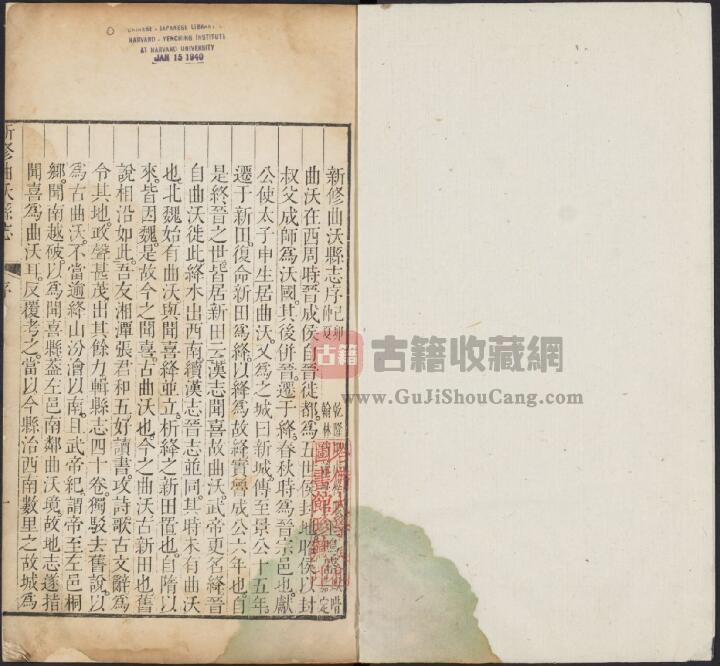 CHINESE - JAPANESE LIBRARY
HARVARD - YENCHING INSTITUTE
AT HARVARD UNIVERSITY
JAN 15 1940
新修曲沃縣志序 己卯仲夏 乾隆 翰林 定
曲沃在西周時晉成侯自晉徙都為五世侯封地昭侯以封
叔父成師為沃國其後併晉遷于絳春秋時為晉宗邑也獻
公使太子申生居曲沃又為之城曰新城傳至景公十五年
遷于新田復命新田為絳以絳為故絳實晉成公六年也自
是終晉之世皆居新田云漢志聞喜故曲沃武帝更名絳晉
自曲沃徙此絳水出西南續漢志晉志並同其時未有曲沃
也北魏始有曲沃與聞喜絳並立析絳之新田置也自隋以
來皆因魏是故今之聞喜古曲沃也今之曲沃古新田也舊
說相沿如此吾友湘潭張君和五好讀書攻詩歌古文辭為
令其地政聲甚茂出其餘力輯縣志四十卷獨駁去舊說以
為古曲沃不當逾絳山汾澮以南且武帝紀謂帝至左邑桐
鄉聞南越破以為聞喜縣蓋左邑南鄰曲沃境故地志遂指
聞喜為曲沃耳反覆考之當以今縣治西南數里之故城為
新修曲沃縣志 序 一
古籍
古籍收藏網
www.GuJiShouCang.com